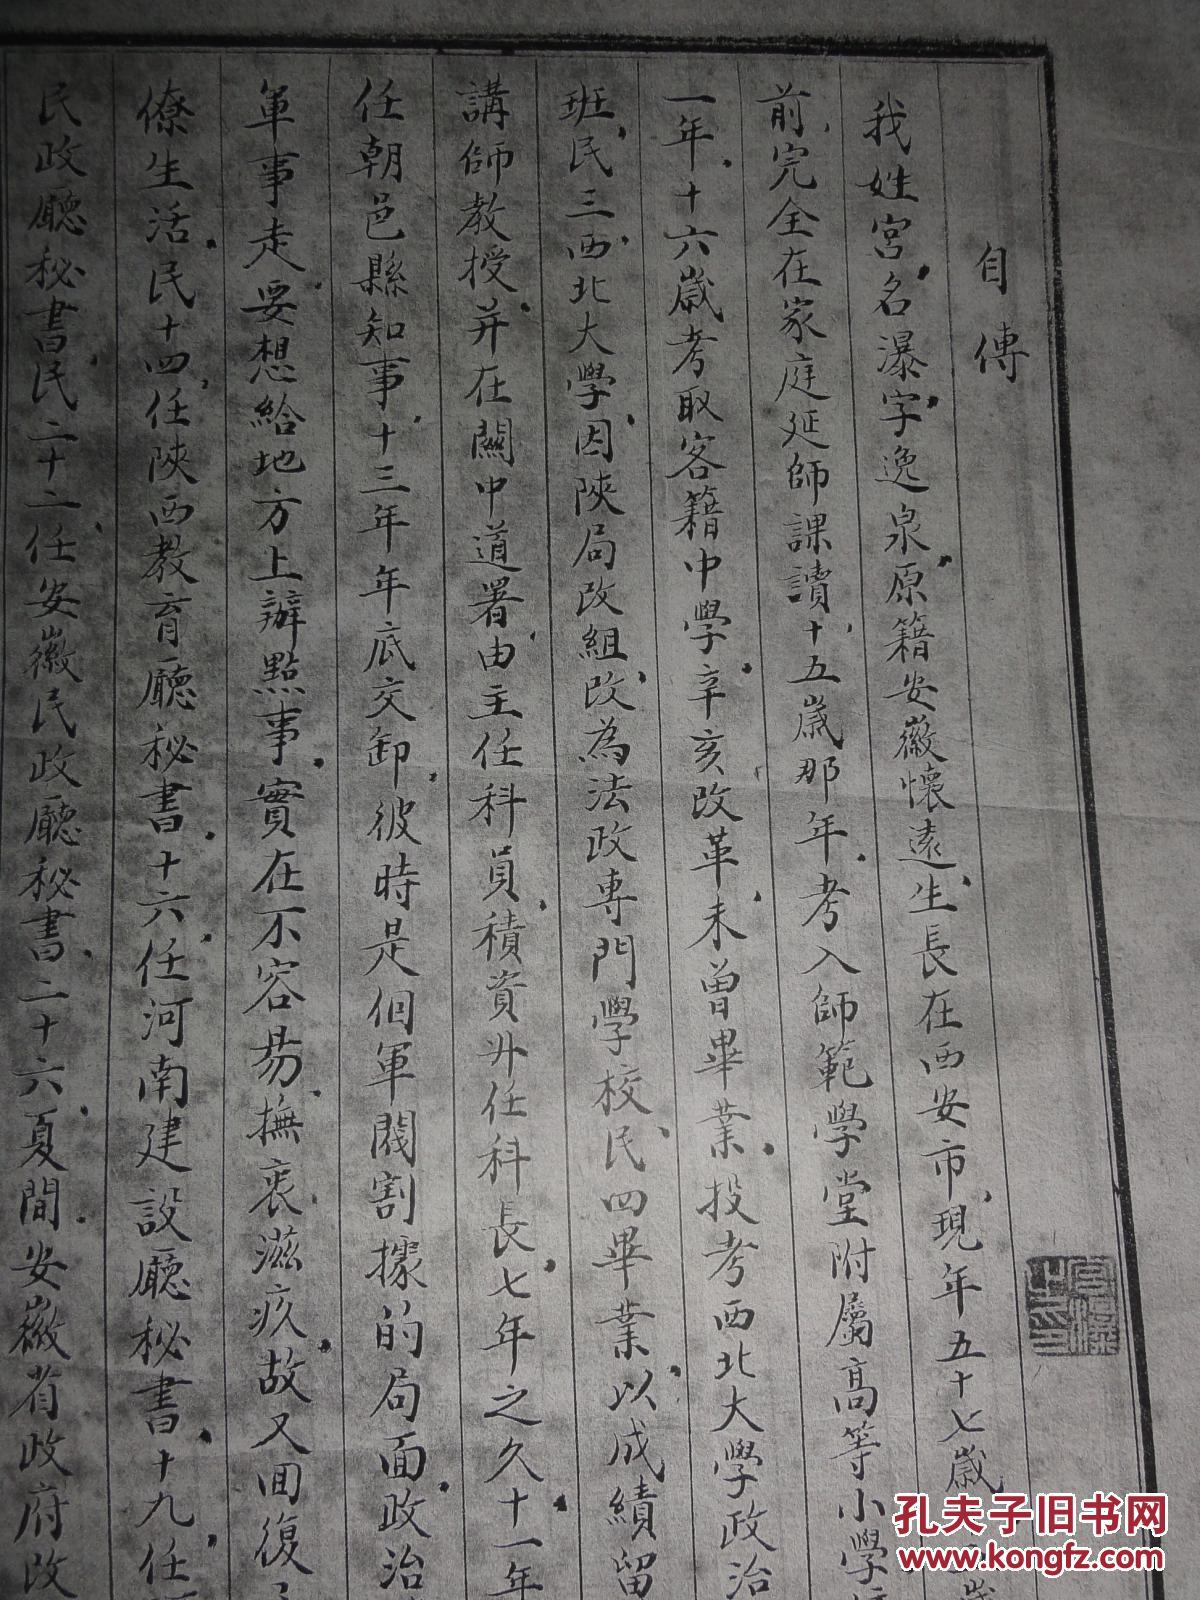 自傳
我姓宮名瀑字逸泉原籍安徽懷遠生長在西安市現年五十七歲
前完全在家庭延師課讀十五歲那年考入師範學堂附屬高等小學
一年十六歲考取客籍中學辛亥改革未曾畢業投考西北大學政治
班民三西北大學因陝局改組改為法政專門學校民四畢業以成績留
講師教授并在關中道署由主任科員積資升任科長七年之久十一年
任朝邑縣知事十三年年底交卸彼時是個軍閥割據的局面政治
軍事走要想給地方上辦點事實在不容易撫衷滋疚故又回復
僚生活民十四任陝西教育廳秘書十六任河南建設廳秘書十九任
民政廳秘書民二十二任安徽民政廳秘書二十六夏間安徽省政府改
孔夫子旧书网
www.kongfz.com